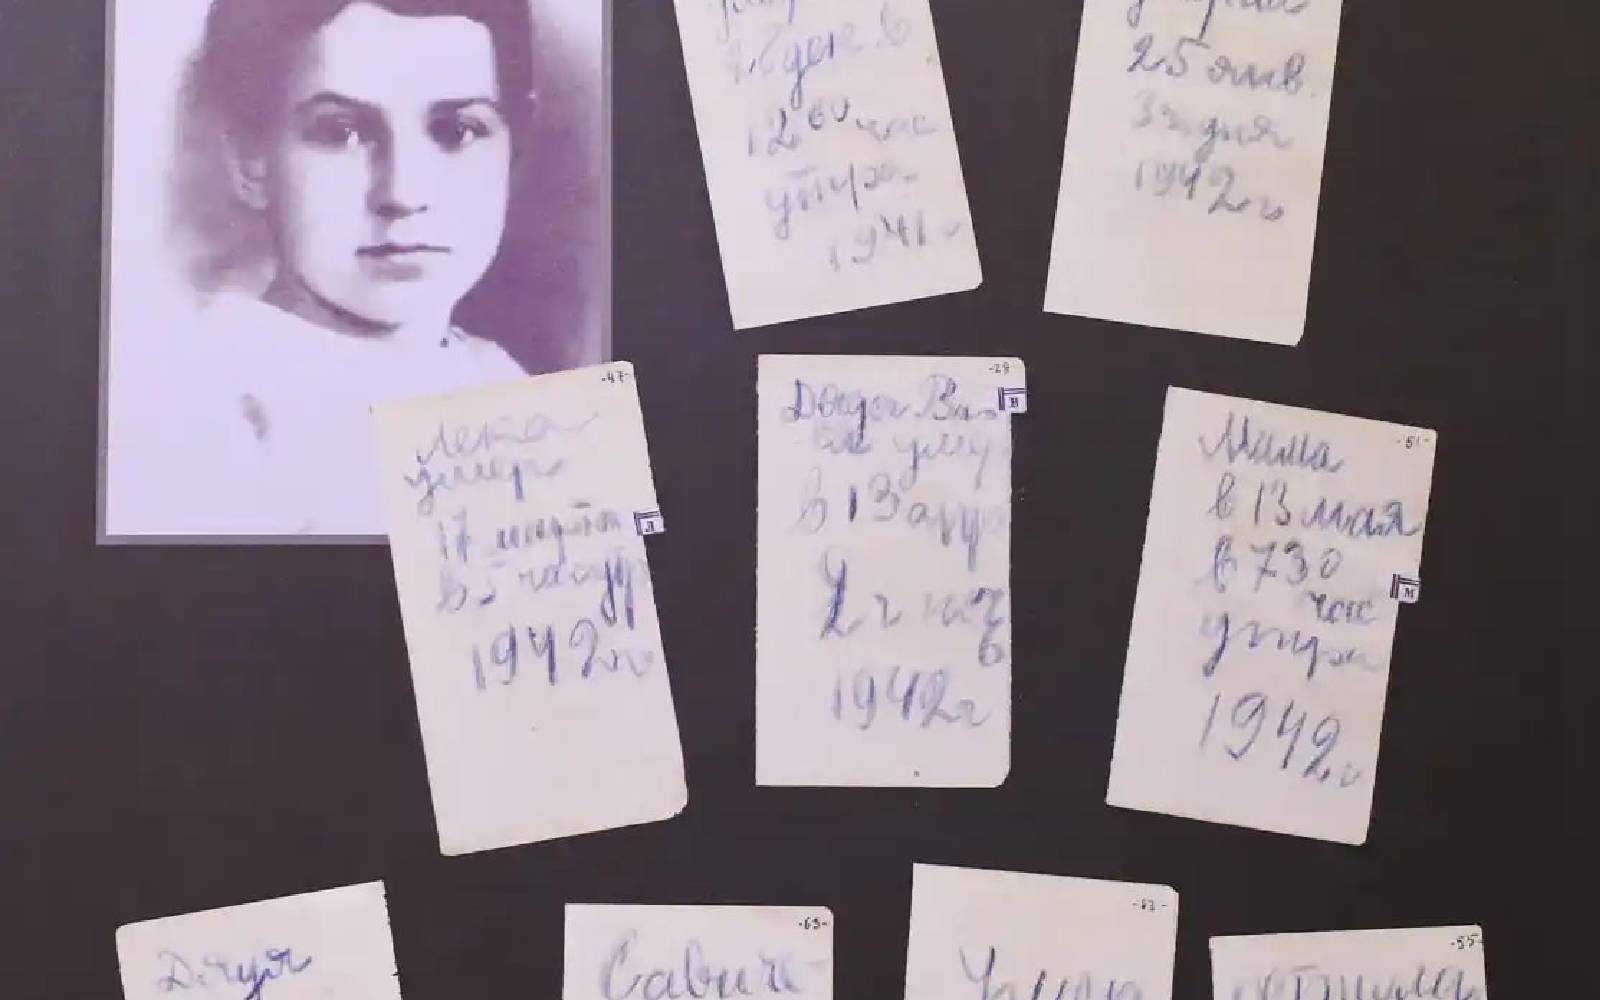 28 дек. в
12 00 час
утра
1941 г
25 янв.
3 ч дня
1942 г
-47-
Лека
умер
17 марта
в 5 час утр
1942 г
Л
-29-
Дядя Вас
в 13 апр
2 ч ноч
1942 г
В
-51-
Мама
в 13 мая
в 730
час
утра
1942 г
М
Дядя
-65-
Савич
-83-
Умер
-55-